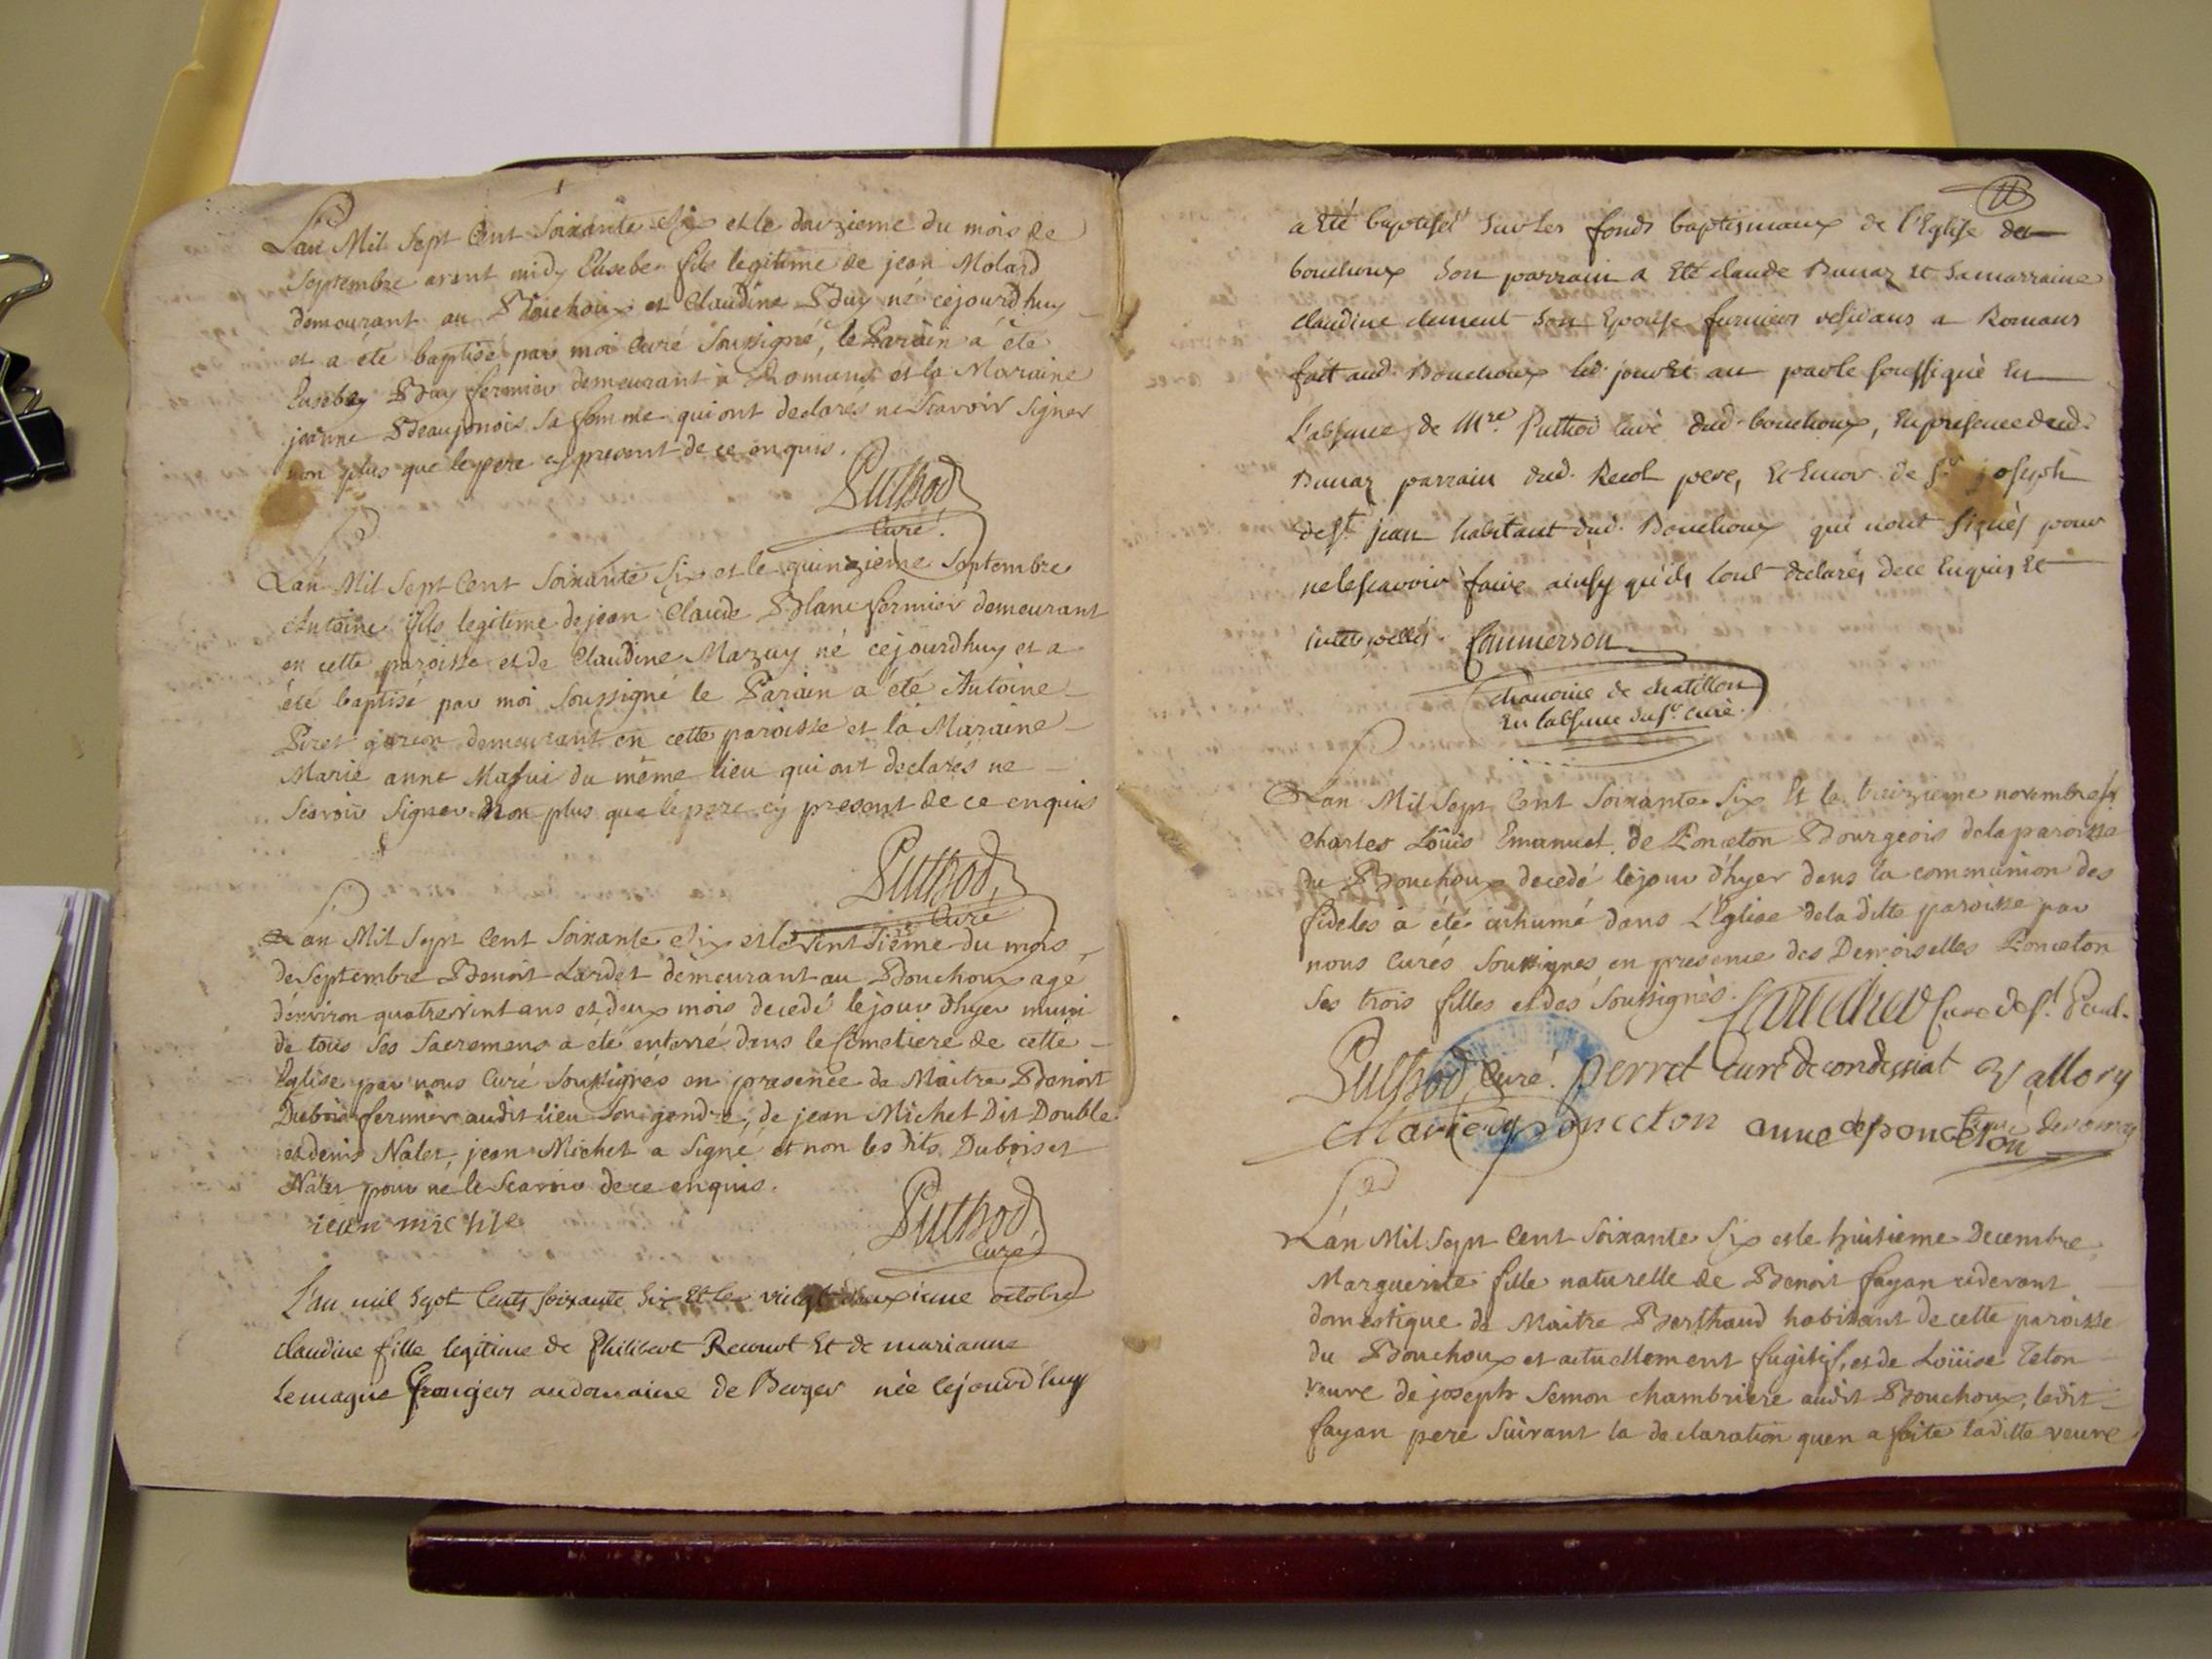 L'an Mil Sept Cent Soixante Six et le douzieme du mois de
Septembre avant midy Eusebe fils legitime de jean Molard
demeurant au Bouchoux et Claudine Buy né cejourd'huy
et a été baptisé par moi Curé Soussigné, le Parain a été
Eusebe Buy fermier demeurant a Romans et la Maraine
jeanne Beaujonois Sa femme qui ont declarés ne Scavoir Signer
non plus que le pere cy present de ce enquis.
Puthod
Curé.
L'an Mil Sept Cent Soixante Six et le quinzieme Septembre
Antoine fils legitime de jean Claude Blanc fermier demeurant
en cette paroisse et de Claudine Mazuy né cejourdhuy et a
été baptisé par moi Soussigné le Parain a été Antoine
Piret garcon demeurant en cette paroisse et la Maraine
Marie anne Mazui du même lieu qui ont declarés ne
Scavoir Signer non plus que le pere cy present de ce enquis
Puthod
Curé
L'an Mil Sept Cent Soixante Six et le vint sieme du mois
de Septembre Benoit Lardet demeurant au Bouchoux agé
d'environ quatrevint ans et deux mois decédé le jour d'hyer muni
de tous Ses Sacremens a été enterré dans le Cimetiere de cette
Eglise par nous Curé Soussignés en presence de Maitre Benoit
Dubois fermier audit lieu Son gendre, de jean Michet Dit Double
et denis Nalet, jean Michet a Signé et non les dits Dubois et
Nalet pour ne le Scavoir de ce enquis.
iean miche
Puthod
Curé
L'an mil sept Cents soixante Six Et le vingt deuxieme octobre
claudine fille legitime de Philibert Recourt Et de marianne
Lemagne grangers au domaine de Berger née cejourd'huy
11
a Eté baptiseé Sur Les fonds baptismaux de l'Eglise du
bouchoux Son parrain a Eté claude Dunaz Et Sa marraine
claudine clement Son Epouse fermiers residans a Romans
fait aud. Bouchoux led. jour Et an par le soussigné En
L'absence de Mre. Puthod Curé dud. bouchoux, En presence dud.
Dunaz parrain dud. Recot pere, Et Encor de Sr. joseph
de St. jean habitant dud. Bouchoux qui n'ont signés pour
ne le scavoir faire ainsy qu'ils l'ont declarés de ce Enquis Et
interpellés. Commerson
chanoine de chatillon
En l'absence du Sr. curé.
L'an Mil Sept Cent Soixante Six Et le treizieme novembre Sr
Charles Loüis Emanuel de Ponceton Bourgeois de la paroisse
du Bouchoux decedé le jour d'hyer dans la communion des
fideles a été inhumé dans L'Eglise de la ditte paroisse par
nous Curés Soussignés en presence des Demoiselles Ponceton
Ses trois filles et des Soussignés. Curé de St. Paul.
Puthod Curé. perret curé de condessiat Vallory
Marie ponceton anne de ponceton curé de romans
L'an Mil Sept Cent Soixante Six et le huitieme Decembre
Marguerite fille naturelle de Benoit fayan cidevant
domestique de Maitre Berthaud habitant de cette paroisse
du Bouchoux et actuellement fugitif, et de Loüise Teton
veuve de joseph Semon chambriere audit Bouchoux, ledit
fayan pere Suivant la declaration qu'en a faite laditte veuve